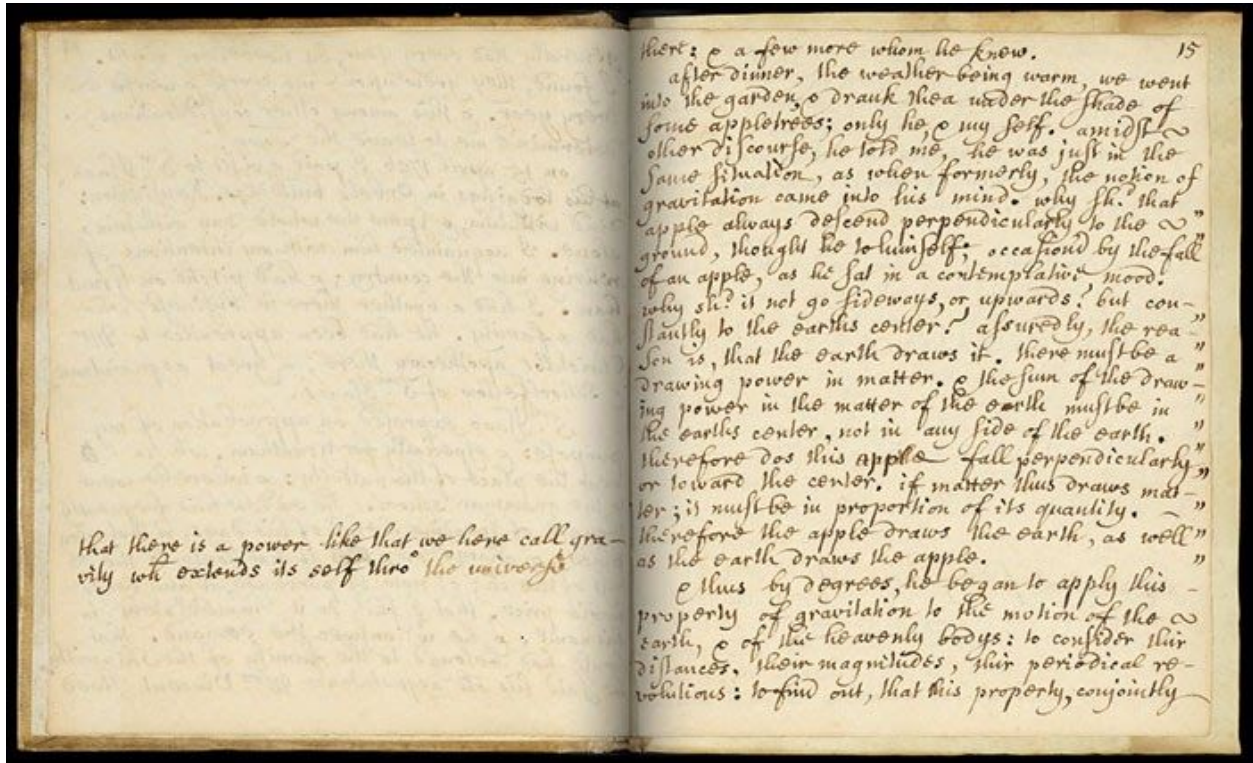 that there is a power like that we here call gra-
vity wch extends its self thro' the universe
15
there: & a few more whom he knew.
after dinner, the weather being warm, we went
into the garden, & drank thea under the shade of
some appletrees; only he, & my self. amidst
other discourse, he told me, he was just in the
same situation, as when formerly, the notion of
gravitation came into his mind. why shd. that
apple always descend perpendicularly to the "
ground, thought he to himself; occasion'd by the fall
of an apple, as he sat in a contemplative mood.
why shd. it not go sideways, or upwards? but con-
stantly to the earths center? assuredly, the rea- "
son is, that the earth draws it. there must be a "
drawing power in matter. & the sum of the draw- "
ing power in the matter of the earth must be in "
the earths center, not in any side of the earth. "
therefore dos this apple fall perpendicularly "
or toward the center. if matter thus draws mat- "
ter; it must be in proportion of its quantity. "
therefore the apple draws the earth, as well "
as the earth draws the apple. "
& thus by degrees, he began to apply this
property of gravitation to the motion of the
earth, & of the heavenly bodys: to consider thir
distances, their magnitudes, thir periodical re-
volutions: to find out, that this property, conjointly